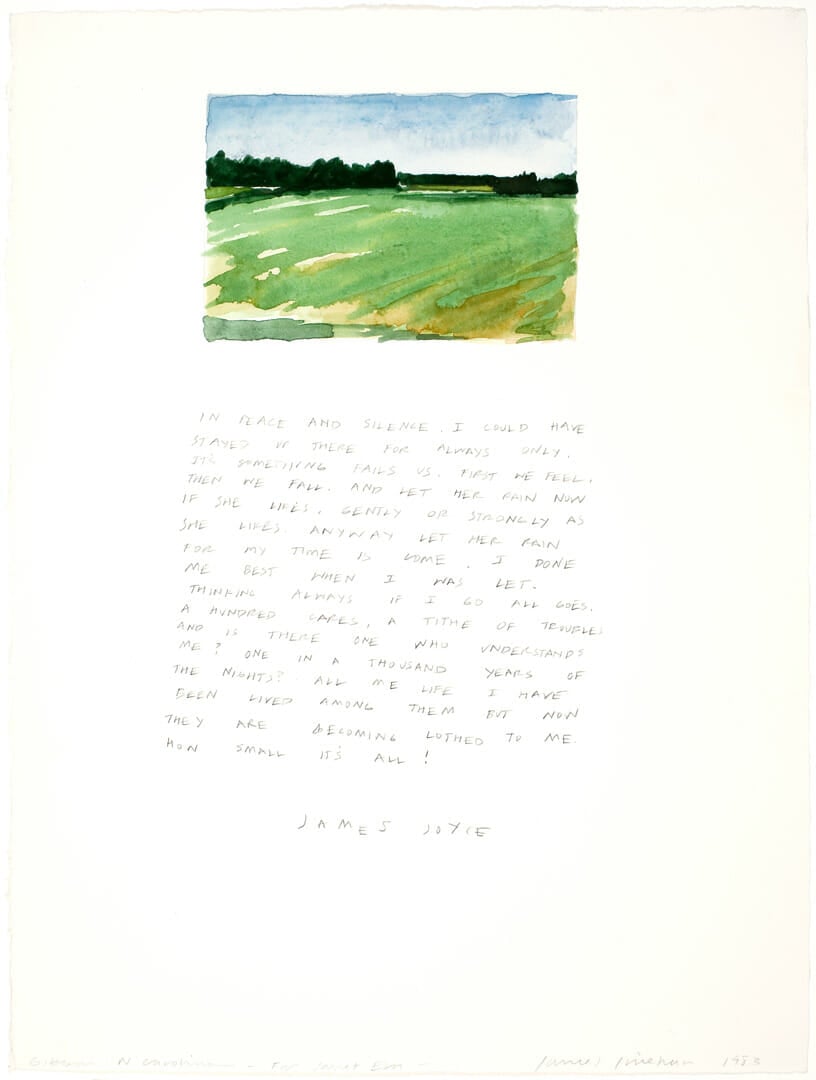 IN PEACE AND SILENCE. I COULD HAVE
STAYED UP THERE FOR ALWAYS ONLY.
IT'S SOMETHING FAILS US. FIRST WE FEEL.
THEN WE FALL. AND LET HER RAIN NOW
IF SHE LIKES. GENTLY OR STRONGLY AS
SHE LIKES. ANYWAY LET HER RAIN
FOR MY TIME IS COME. I DONE
ME BEST WHEN I WAS LET.
THINKING ALWAYS IF I GO ALL GOES.
A HUNDRED CARES, A TITHE OF TROUBLES
AND IS THERE ONE WHO UNDERSTANDS
ME? ONE IN A THOUSAND YEARS OF
THE NIGHTS? ALL ME LIFE I HAVE
BEEN LIVED AMONG THEM BUT NOW
THEY ARE BECOMING LOTHED TO ME.
HOW SMALL IT'S ALL!
JAMES JOYCE
Gibson N Carolina - For Janet Em -
James 1983